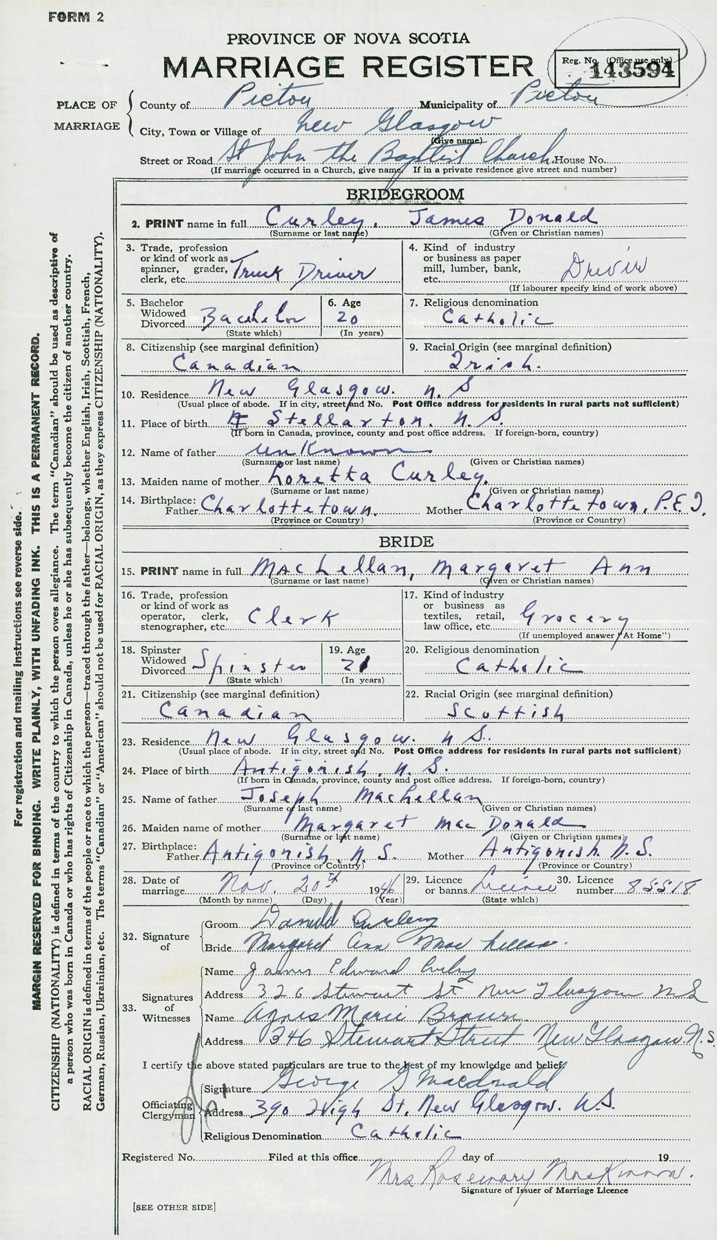 FORM 2
PROVINCE OF NOVA SCOTIA
MARRIAGE REGISTER
Reg. No. (Office use only)
143594
PLACE OF MARRIAGE
County of Pictou Municipality of Pictou
City, Town or Village of New Glasgow
(Give name)
Street or Road St John the Baptist Church. House No.
(If marriage occurred in a Church, give name. If in a private residence give street and number)
BRIDEGROOM
2. PRINT name in full Curley, James Donald
(Surname or last name) (Given or Christian names)
3. Trade, profession or kind of work as spinner, grader, clerk, etc. Truck Driver
4. Kind of industry or business as paper mill, lumber, bank, etc.
(If labourer specify kind of work above)
5. Bachelor Widowed Divorced Bachelor
(State which)
6. Age 20
(In years)
7. Religious denomination
Catholic
8. Citizenship (see marginal definition)
Canadian
9. Racial Origin (see marginal definition)
Irish.
10. Residence New Glasgow. N.S
(Usual place of abode. If in city, street and No. Post Office address for residents in rural parts not sufficient)
11. Place of birth Stellarton. N.S.
(If born in Canada, province, county and post office address. If foreign-born, country)
12. Name of father unKnown
(Surname or last name) (Given or Christian names)
13. Maiden name of mother Loretta Curley.
(Surname or last name) (Given or Christian names)
14. Birthplace: Father Charlottetown. Mother Charlottetown, P.E.I.
(Province or Country) (Province or Country)
BRIDE
15. PRINT name in full MacLellan, Margaret Ann
(Surname or last name) (Given or Christian names)
16. Trade, profession or kind of work as operator, clerk, stenographer, etc. Clerk
17. Kind of industry or business as textiles, retail, law office, etc. Grocery
(If unemployed answer "At Home")
18. Spinster Widowed Divorced Spinster
(State which)
19. Age 21
(In years)
20. Religious denomination
Catholic
21. Citizenship (see marginal definition)
Canadian
22. Racial Origin (see marginal definition)
Scottish
23. Residence New Glasgow. N.S.
(Usual place of abode. If in city, street and No. Post Office address for residents in rural parts not sufficient)
24. Place of birth Antigonish, N.S.
(If born in Canada, province, county and post office address. If foreign-born, country)
25. Name of father Joseph MacLellan
(Surname or last name) (Given or Christian names)
26. Maiden name of mother Margaret MacDonald
(Surname or last name) (Given or Christian names)
27. Birthplace: Father Antigonish, N.S. Mother Antigonish, N.S.
(Province or Country) (Province or Country)
28. Date of marriage Nov. 20th 1946
(Month by name) (Day) (Year)
29. Licence or banns Licence
(State which)
30. Licence number 85518
32. Signature of
Groom Donald Curley
Bride Margaret Ann Mac Lellan.
33. Signatures of Witnesses
Name James Edward Curley
Address 326 Stewart St New Glasgow N S
Name Agnes Marie Brown.
Address 346 Stewart Street New Glasgow N.S.
I certify the above stated particulars are true to the best of my knowledge and belief
Officiating Clergyman
Signature George Macdonald
Address 390 High St. New Glasgow. N.S.
Religious Denomination Catholic
Registered No. Filed at this office day of 19
Mrs Rosemary MacKinnon.
Signature of Issuer of Marriage Licence
[SEE OTHER SIDE]
For registration and mailing instructions see reverse side.
MARGIN RESERVED FOR BINDING. WRITE PLAINLY, WITH UNFADING INK. THIS IS A PERMANENT RECORD.
CITIZENSHIP (NATIONALITY) is defined in terms of the country to which the person owes allegiance. The term "Canadian" should be used as descriptive of
a person who was born in Canada or who has rights of Citizenship in Canada, unless he or she has subsequently become the citizen of another country.
RACIAL ORIGIN is defined in terms of the people or race to which the person—traced through the father—belongs, whether English, Irish, Scottish, French,
German, Russian, Ukrainian, etc. The terms "Canadian" or "American" should not be used for RACIAL ORIGIN, as they express CITIZENSHIP (NATIONALITY).